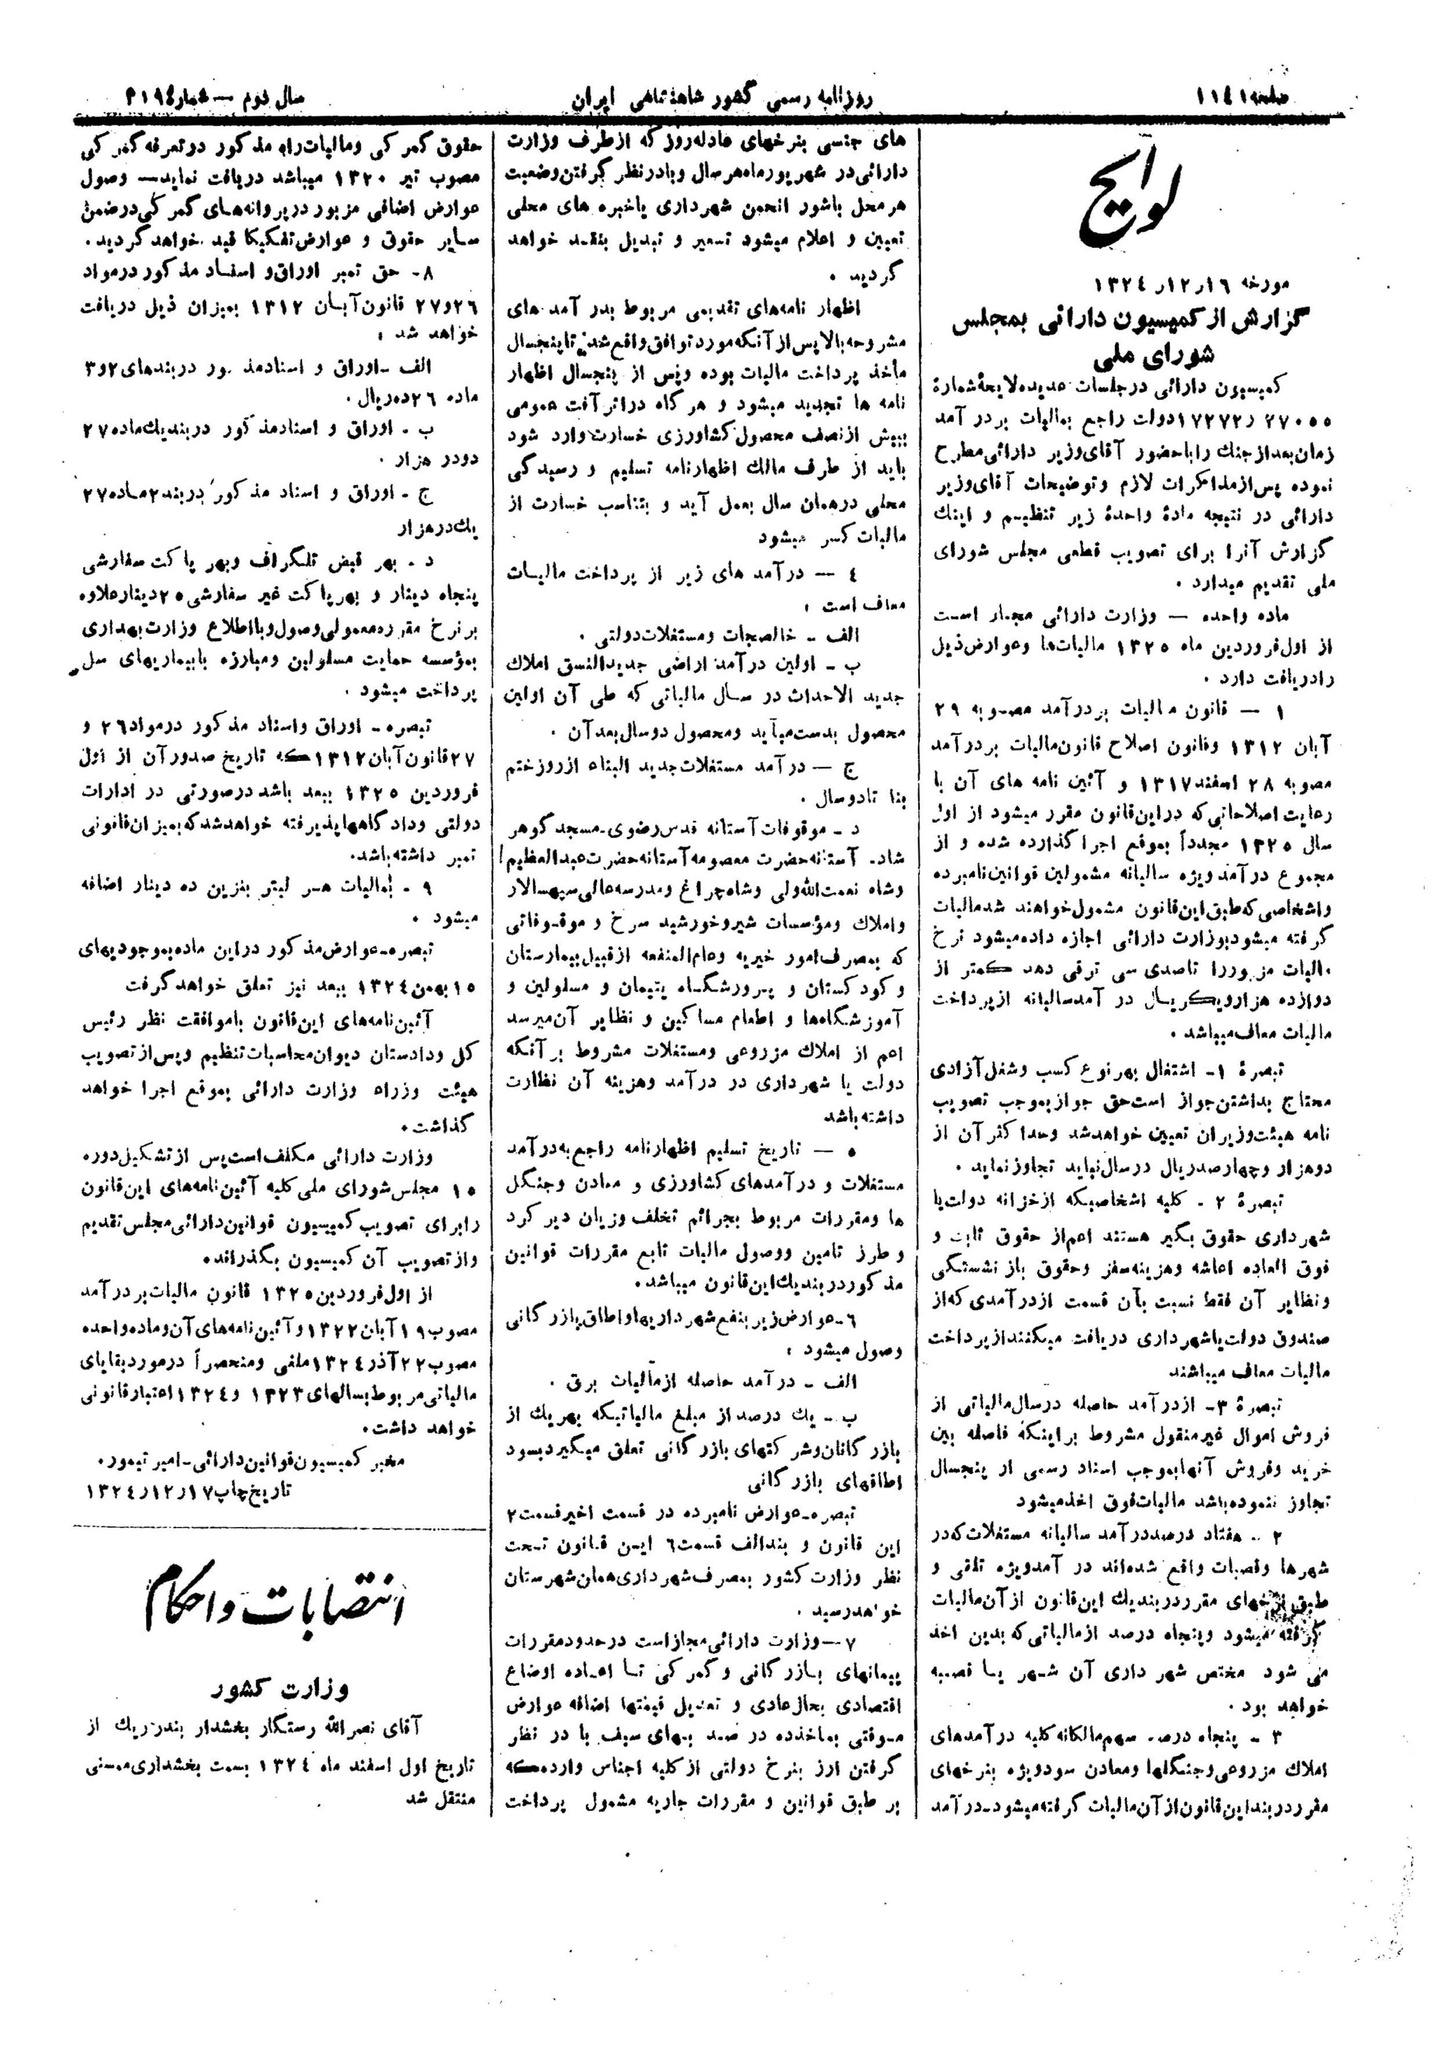 صفحه ۱۱۴۱
روزنامه رسمی کشور شاهنشاهی ایران
سال دوم — شماره ۳۱۹۴
لوایح
مورخه ۱۶ر۱۲ر۱۳۲۴
گزارش از کمیسیون دارائی بمجلس
شورای ملی
کمیسیون دارائی در جلسات عدیده لایحهٔ شمارهٔ
۲۷۰۵۵ ر ۱۷۲۷۲ دولت راجع بمالیات بر درآمد
زمان بعد از جنك را با حضور آقای وزیر دارائی مطرح
نموده پس از مذاکرات لازم و توضیحات آقای وزیر
دارائی در نتیجه مادهٔ واحدهٔ زیر تنظیم و اینك
گزارش آنرا برای تصویب قطعی مجلس شورای
ملی تقدیم میدارد .
ماده واحده — وزارت دارائی مجاز است
از اول فروردین ماه ۱۳۲۵ مالیات‌ها و عوارض ذیل
را دریافت دارد .
۱ — قانون مالیات بر درآمد مصوبه ۲۹
آبان ۱۳۱۲ و قانون اصلاح قانون مالیات بر درآمد
مصوبه ۲۸ اسفند ۱۳۱۷ و آئین نامه های آن با
رعایت اصلاحاتی که در این قانون مقرر میشود از اول
سال ۱۳۲۵ مجدداً بموقع اجرا گذارده شده و از
مجموع درآمد ویژه سالیانه مشمولین قوانین نامبرده
و اشخاصی که طبق این قانون مشمول خواهند شد مالیات
گرفته میشود بوزارت دارائی اجازه داده میشود نرخ
مالیات مزبور را تا صدی سی ترقی دهد کمتر از
دوازده هزار و یکریال در آمد سالیانه از پرداخت
مالیات معاف میباشد .
تبصرهٔ ۱- اشتغال بهر نوع کسب و شغل آزادی
محتاج بداشتن جواز است حق جواز بموجب تصویب
نامه هیئت وزیران تعیین خواهد شد و حداکثر آن از
دو هزار و چهار صد ریال در سال نباید تجاوز نماید .
تبصرهٔ ۲ - کلیه اشخاصیکه از خزانه دولت یا
شهرداری حقوق بگیر هستند اعم از حقوق ثابت و
فوق العاده اعاشه و هزینه سفر و حقوق بازنشستگی
و نظایر آن فقط نسبت بآن قسمت از درآمدی که از
صندوق دولت یا شهرداری دریافت میکنند از پرداخت
مالیات معاف میباشند
تبصرهٔ ۳- از درآمد حاصله در سال مالیاتی از
فروش اموال غیر منقول مشروط بر اینکه فاصله بین
خرید و فروش آنها بموجب اسناد رسمی از پنجسال
تجاوز ننموده باشد مالیات فوق اخذ میشود
۲ .. هفتاد درصد درآمد سالیانه مستغلات که در
شهرها و قصبات واقع شده‌اند در آمد ویژه تلقی و
طبق نرخهای مقرر در بند یك این قانون از آن مالیات
گرفته میشود و پنجاه درصد از مالیاتی که بدین اخذ
می شود مختص شهر داری آن شهر یا قصبه
خواهد بود .
۳ - پنجاه درصد سهم مالکانه کلیه درآمدهای
املاك مزروعی و جنگلها و معادن سود ویژه بنرخهای
مقرر در بند این قانون از آن مالیات گرفته میشود - درآمد
های جنسی بنرخهای عادله روز که از طرف وزارت
دارائی در شهریور ماه هر سال و با در نظر گرفتن وضعیت
هر محل با شور انجمن شهرداری یا خبره های محلی
تعیین و اعلام میشود تسعیر و تبدیل بنقد خواهد
گردید .
اظهار نامه‌های تقدیمی مربوط بدر آمد های
مشروحه بالا پس از آنکه مورد توافق واقع شد تا پنجسال
مأخذ پرداخت مالیات بوده و پس از پنجسال اظهار
نامه ها تجدید میشود و هر گاه در اثر آفت عمومی
بیش از نصف محصول کشاورزی خسارت وارد شود
باید از طرف مالك اظهارنامه تسلیم و رسیدگی
محلی در همان سال بعمل آید و بتناسب خسارت از
مالیات کسر میشود
۴ — درآمد های زیر از پرداخت مالیات
معاف است :
الف - خالصجات و مستغلات دولتی .
ب - اولین درآمد اراضی جدید النسق املاك
جدید الاحداث در سال مالیاتی که طی آن اولین
محصول بدست میآید و محصول دو سال بعد آن .
ج — درآمد مستغلات جدید البناء از روز ختم
بنا تا دو سال .
د - موقوفات آستانه قدس رضوی - مسجد گوهر
شاد - آستانه حضرت معصومه آستانه حضرت عبدالعظیم
و شاه نعمت الله ولی و شاه چراغ و مدرسه عالی سپهسالار
و املاك و مؤسسات شیر و خورشید سرخ و موقوفاتی
که بمصرف امور خیریه و عام المنفعه از قبیل بیمارستان
و کودکستان و پرورشگاه یتیمان و مسلولین و
آموزشگاه‌ها و اطعام مساکین و نظایر آن میرسد
اعم از املاك مزروعی و مستغلات مشروط بر آنکه
دولت یا شهرداری در درآمد و هزینه آن نظارت
داشته باشد
۵ — تاریخ تسلیم اظهارنامه راجع به درآمد
مستغلات و درآمدهای کشاورزی و معادن و جنگل
ها و مقررات مربوط بجرائم تخلف و زیان دیر کرد
و طرز تامین و وصول مالیات تابع مقررات قوانین
مذکور در بند یك این قانون میباشد.
۶- عوارض زیر بنفع شهرداریها و اطاق بازرگانی
وصول میشود :
الف - درآمد حاصله از مالیات برق .
ب - یك درصد از مبلغ مالیاتیکه بهر یك از
بازرگانان و شرکتهای بازرگانی تعلق میگیرد بسود
اطاقهای بازرگانی
تبصره - عوارض نامبرده در قسمت اخیر قسمت ۲
این قانون و بند الف قسمت ۶ این قانون تحت
نظر وزارت کشور بمصرف شهرداری همان شهرستان
خواهد رسید .
۷ — وزارت دارائی مجاز است در حدود مقررات
پیمانهای بازرگانی و گمرکی تا اعاده اوضاع
اقتصادی بحال عادی و تعدیل قیمتها اضافه عوارض
موقتی بماخذ ده در صد بهای سیف با در نظر
گرفتن ارز بنرخ دولتی از کلیه اجناس وارده که
بر طبق قوانین و مقررات جاریه مشمول پرداخت
حقوق گمرکی و مالیات راه مذکور در تعرفه گمرکی
مصوب تیر ۱۳۲۰ میباشد دریافت نماید — وصول
عوارض اضافی مزبور در پروانه‌های گمرکی در ضمن
سایر حقوق و عوارض تفکیکا قید خواهد گردید .
۸ - حق تمبر اوراق و اسناد مذکور در مواد
۲۶ و ۲۷ قانون آبان ۱۳۱۲ بمیزان ذیل دریافت
خواهد شد :
الف - اوراق و اسناد مذکور در بندهای ۲ و ۳
ماده ۲۶ ده ریال .
ب - اوراق و اسناد مذکور در بند یك ماده ۲۷
دو در هزار .
ج - اوراق و اسناد مذکور در بند ۲ ماده ۲۷
یك در هزار
د . بهر قبض تلگراف و بهر پاکت سفارشی
پنجاه دینار و بهر پاکت غیر سفارشی ۲۵ دینار علاوه
بر نرخ مقرره معمولی وصول و با اطلاع وزارت بهداری
بمؤسسه حمایت مسلولین و مبارزه با بیماریهای سل
پرداخت میشود .
تبصره - اوراق و اسناد مذکور در مواد ۲۶ و
۲۷ قانون آبان ۱۳۱۲ که تاریخ صدور آن از اول
فروردین ۱۳۲۵ ببعد باشد در صورتی در ادارات
دولتی و دادگاهها پذیرفته خواهد شد که بمیزان قانونی
تمبر داشته باشد.
۹ - بمالیات هر لیتر بنزین ده دینار اضافه
میشود .
تبصره - عوارض مذکور در این ماده بموجودیهای
۱۵ بهمن ۱۳۲۴ ببعد نیز تعلق خواهد گرفت
آئین نامه های این قانون با موافقت نظر رئیس
کل و دادستان دیوان محاسبات تنظیم و پس از تصویب
هیئت وزراء وزارت دارائی بموقع اجرا خواهد
گذاشت .
وزارت دارائی مکلف است پس از تشکیل دوره
۱۵ مجلس شورای ملی کلیه آئین نامه های این قانون
را برای تصویب کمیسیون قوانین دارائی مجلس تقدیم
و از تصویب آن کمیسیون بگذراند.
از اول فروردین ۱۳۲۵ قانون مالیات بر درآمد
مصوب ۱۹ آبان ۱۳۲۲ و آئین نامه های آن و ماده واحده
مصوب ۲۲ آذر ۱۳۲۴ ملغی و منحصراً در مورد بقایای
مالیاتی مربوط بسالهای ۱۳۲۳ و ۱۳۲۴ اعتبار قانونی
خواهد داشت.
مخبر کمیسیون قوانین دارائی - امیر تیمور.
تاریخ چاپ ۱۷ر۱۲ر۱۳۲۴
انتصابات و احکام
وزارت کشور
آقای نصرالله رستگار بخشدار بندر ریك از
تاریخ اول اسفند ماه ۱۳۲۴ بسمت بخشداری ممسنی
منتقل شد